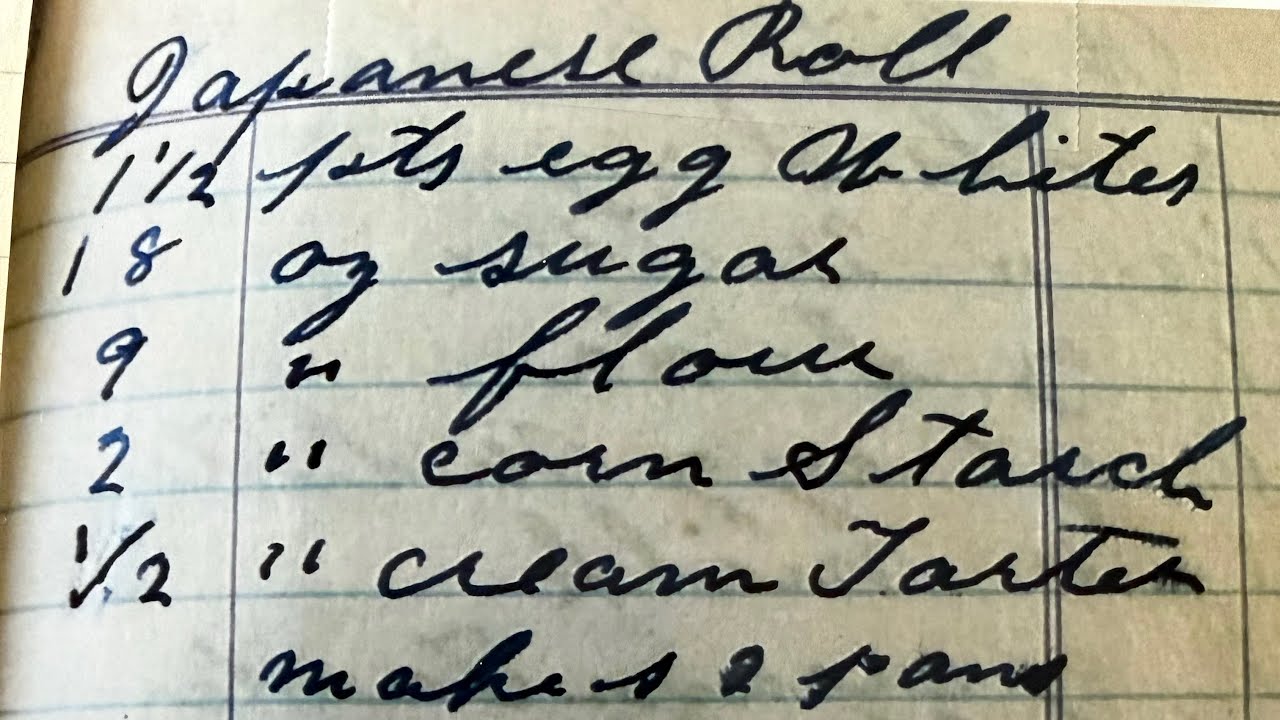 Japanese Roll
1 1/2 pts egg Whites
18 oz sugar
9 " flour
2 " corn Starch
1/2 " cream Tarter
makes 2 pans